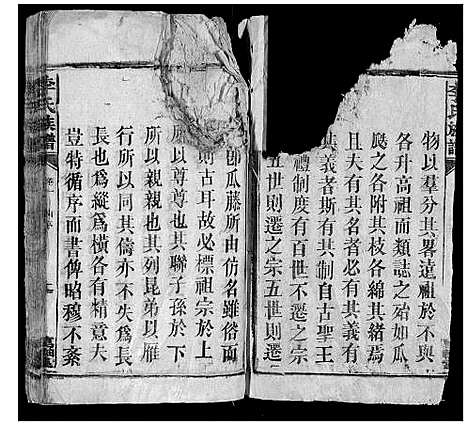 物以羣分其畧遠祖於不與
各升高祖而類誌之殆如瓜
瓞之各附其枝各綿其緒焉
且夫有其名者必有其義有
其義者斯有其制自古聖王
禮制度有百世不遷之宗
五世則遷之宗五世則遷
卽瓜藤所由仿名雖俗而
則古耳故必標祖宗於上
以尊尊也其聯子孫於下
所以親親也其列昆弟以雁
行所以同其儔亦不失爲長
長也爲縱爲橫各有精意夫
豈特循序而書俾昭穆不紊
李氏族譜